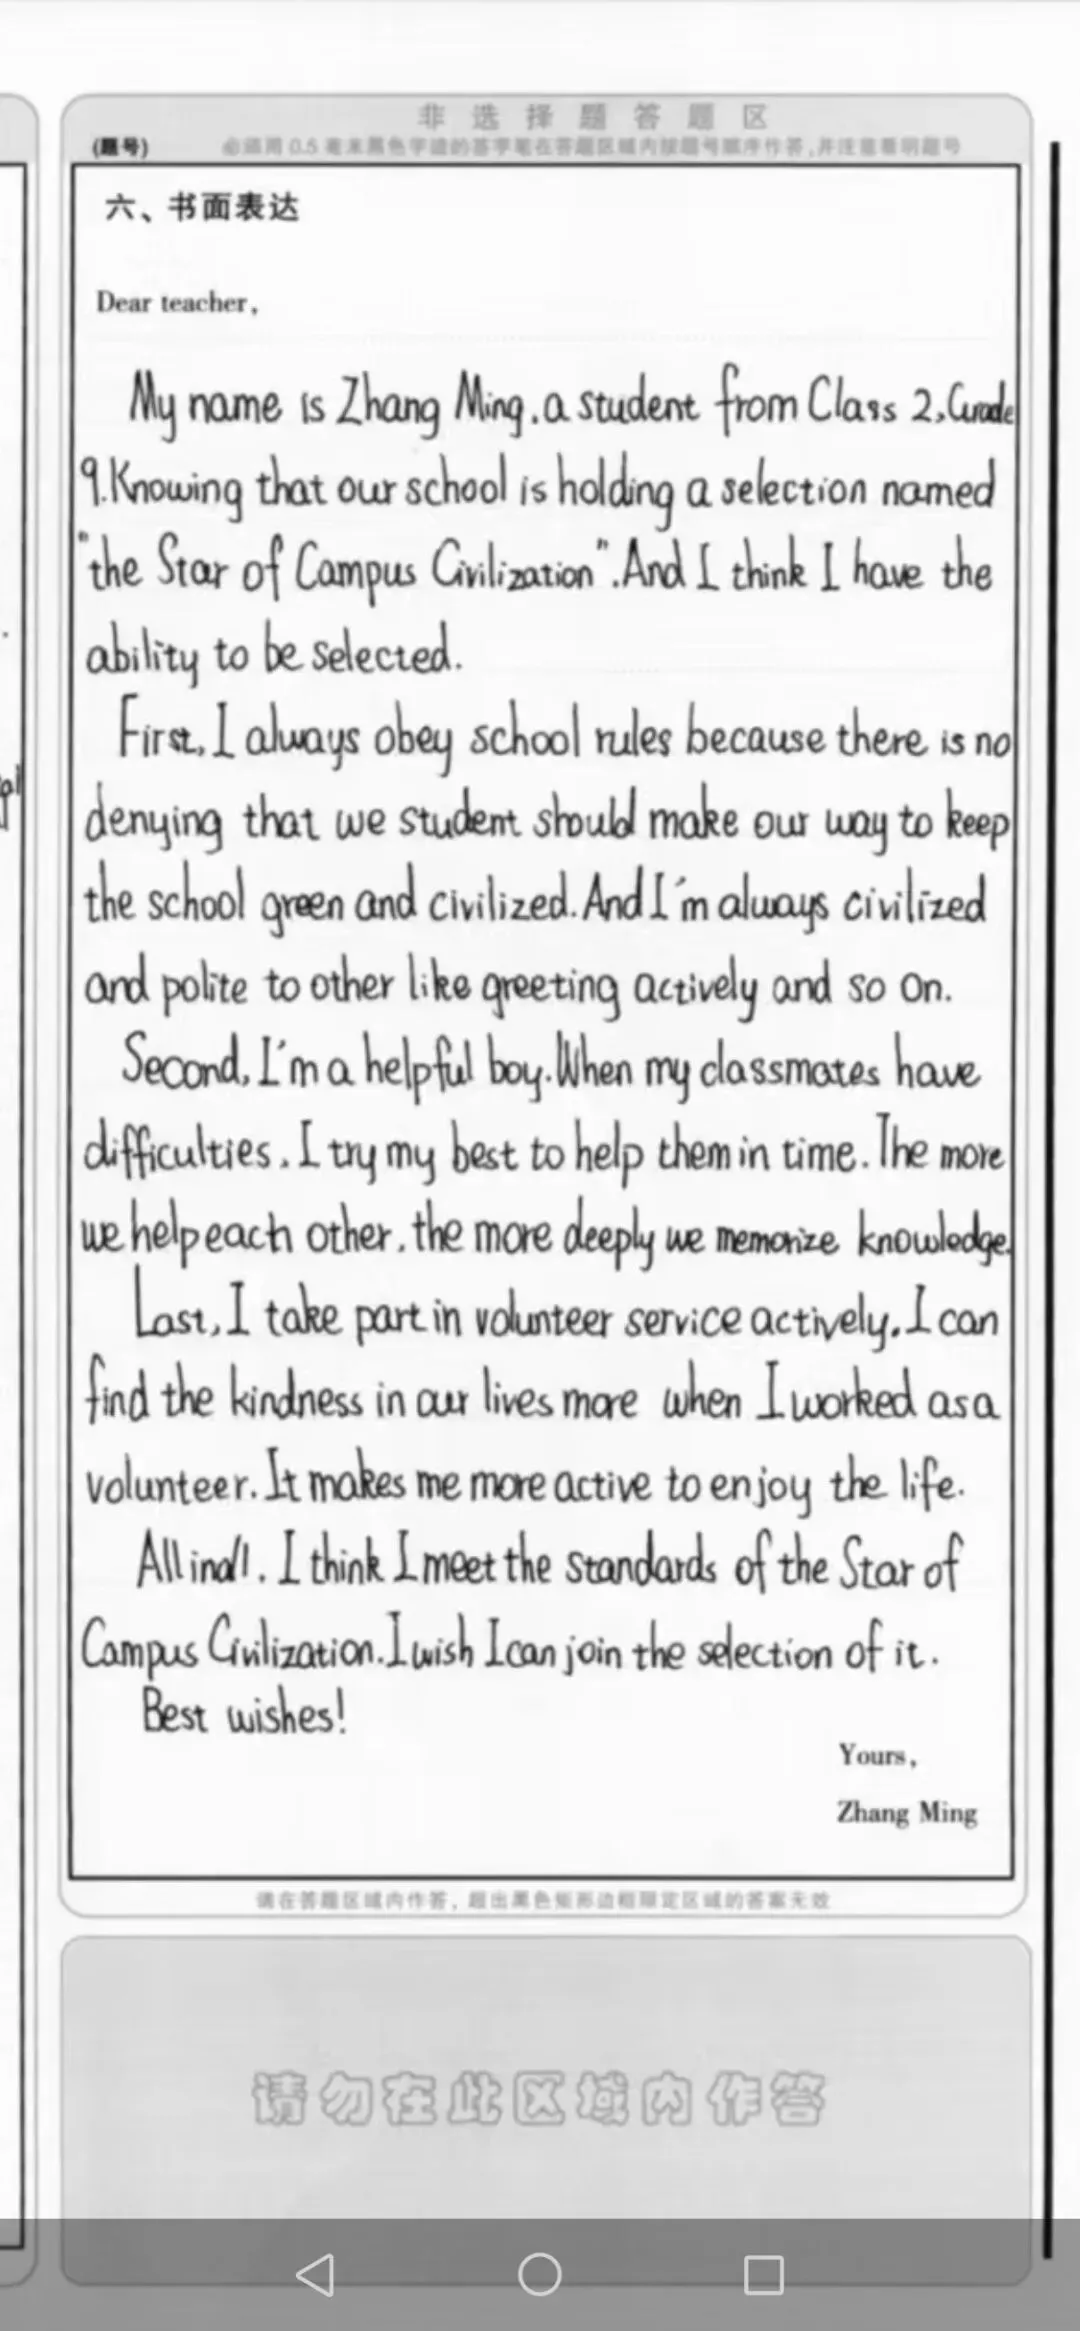 非选择题答题区
(题号)
必须用 0.5 毫米黑色字迹的签字笔在答题区域内按题号顺序作答,并注意看明题号
六、书面表达
Dear teacher,
My name is Zhang Ming, a student from Class 2, Grade
9. Knowing that our school is holding a selection named
"the Star of Campus Civilization". And I think I have the
ability to be selected.
First, I always obey school rules because there is no
denying that we student should make our way to keep
the school green and civilized. And I'm always civilized
and polite to other like greeting actively and so on.
Second, I'm a helpful boy. When my classmates have
difficulties, I try my best to help them in time. The more
we help each other, the more deeply we memorize knowledge.
Last, I take part in volunteer service actively. I can
find the kindness in our lives more when I worked as a
volunteer. It makes me more active to enjoy the life.
All in all, I think I meet the standards of the Star of
Campus Civilization. I wish I can join the selection of it.
Best wishes!
Yours,
Zhang Ming
请在答题区域内作答，超出黑色矩形边框限定区域的答案无效
请勿在此区域内作答